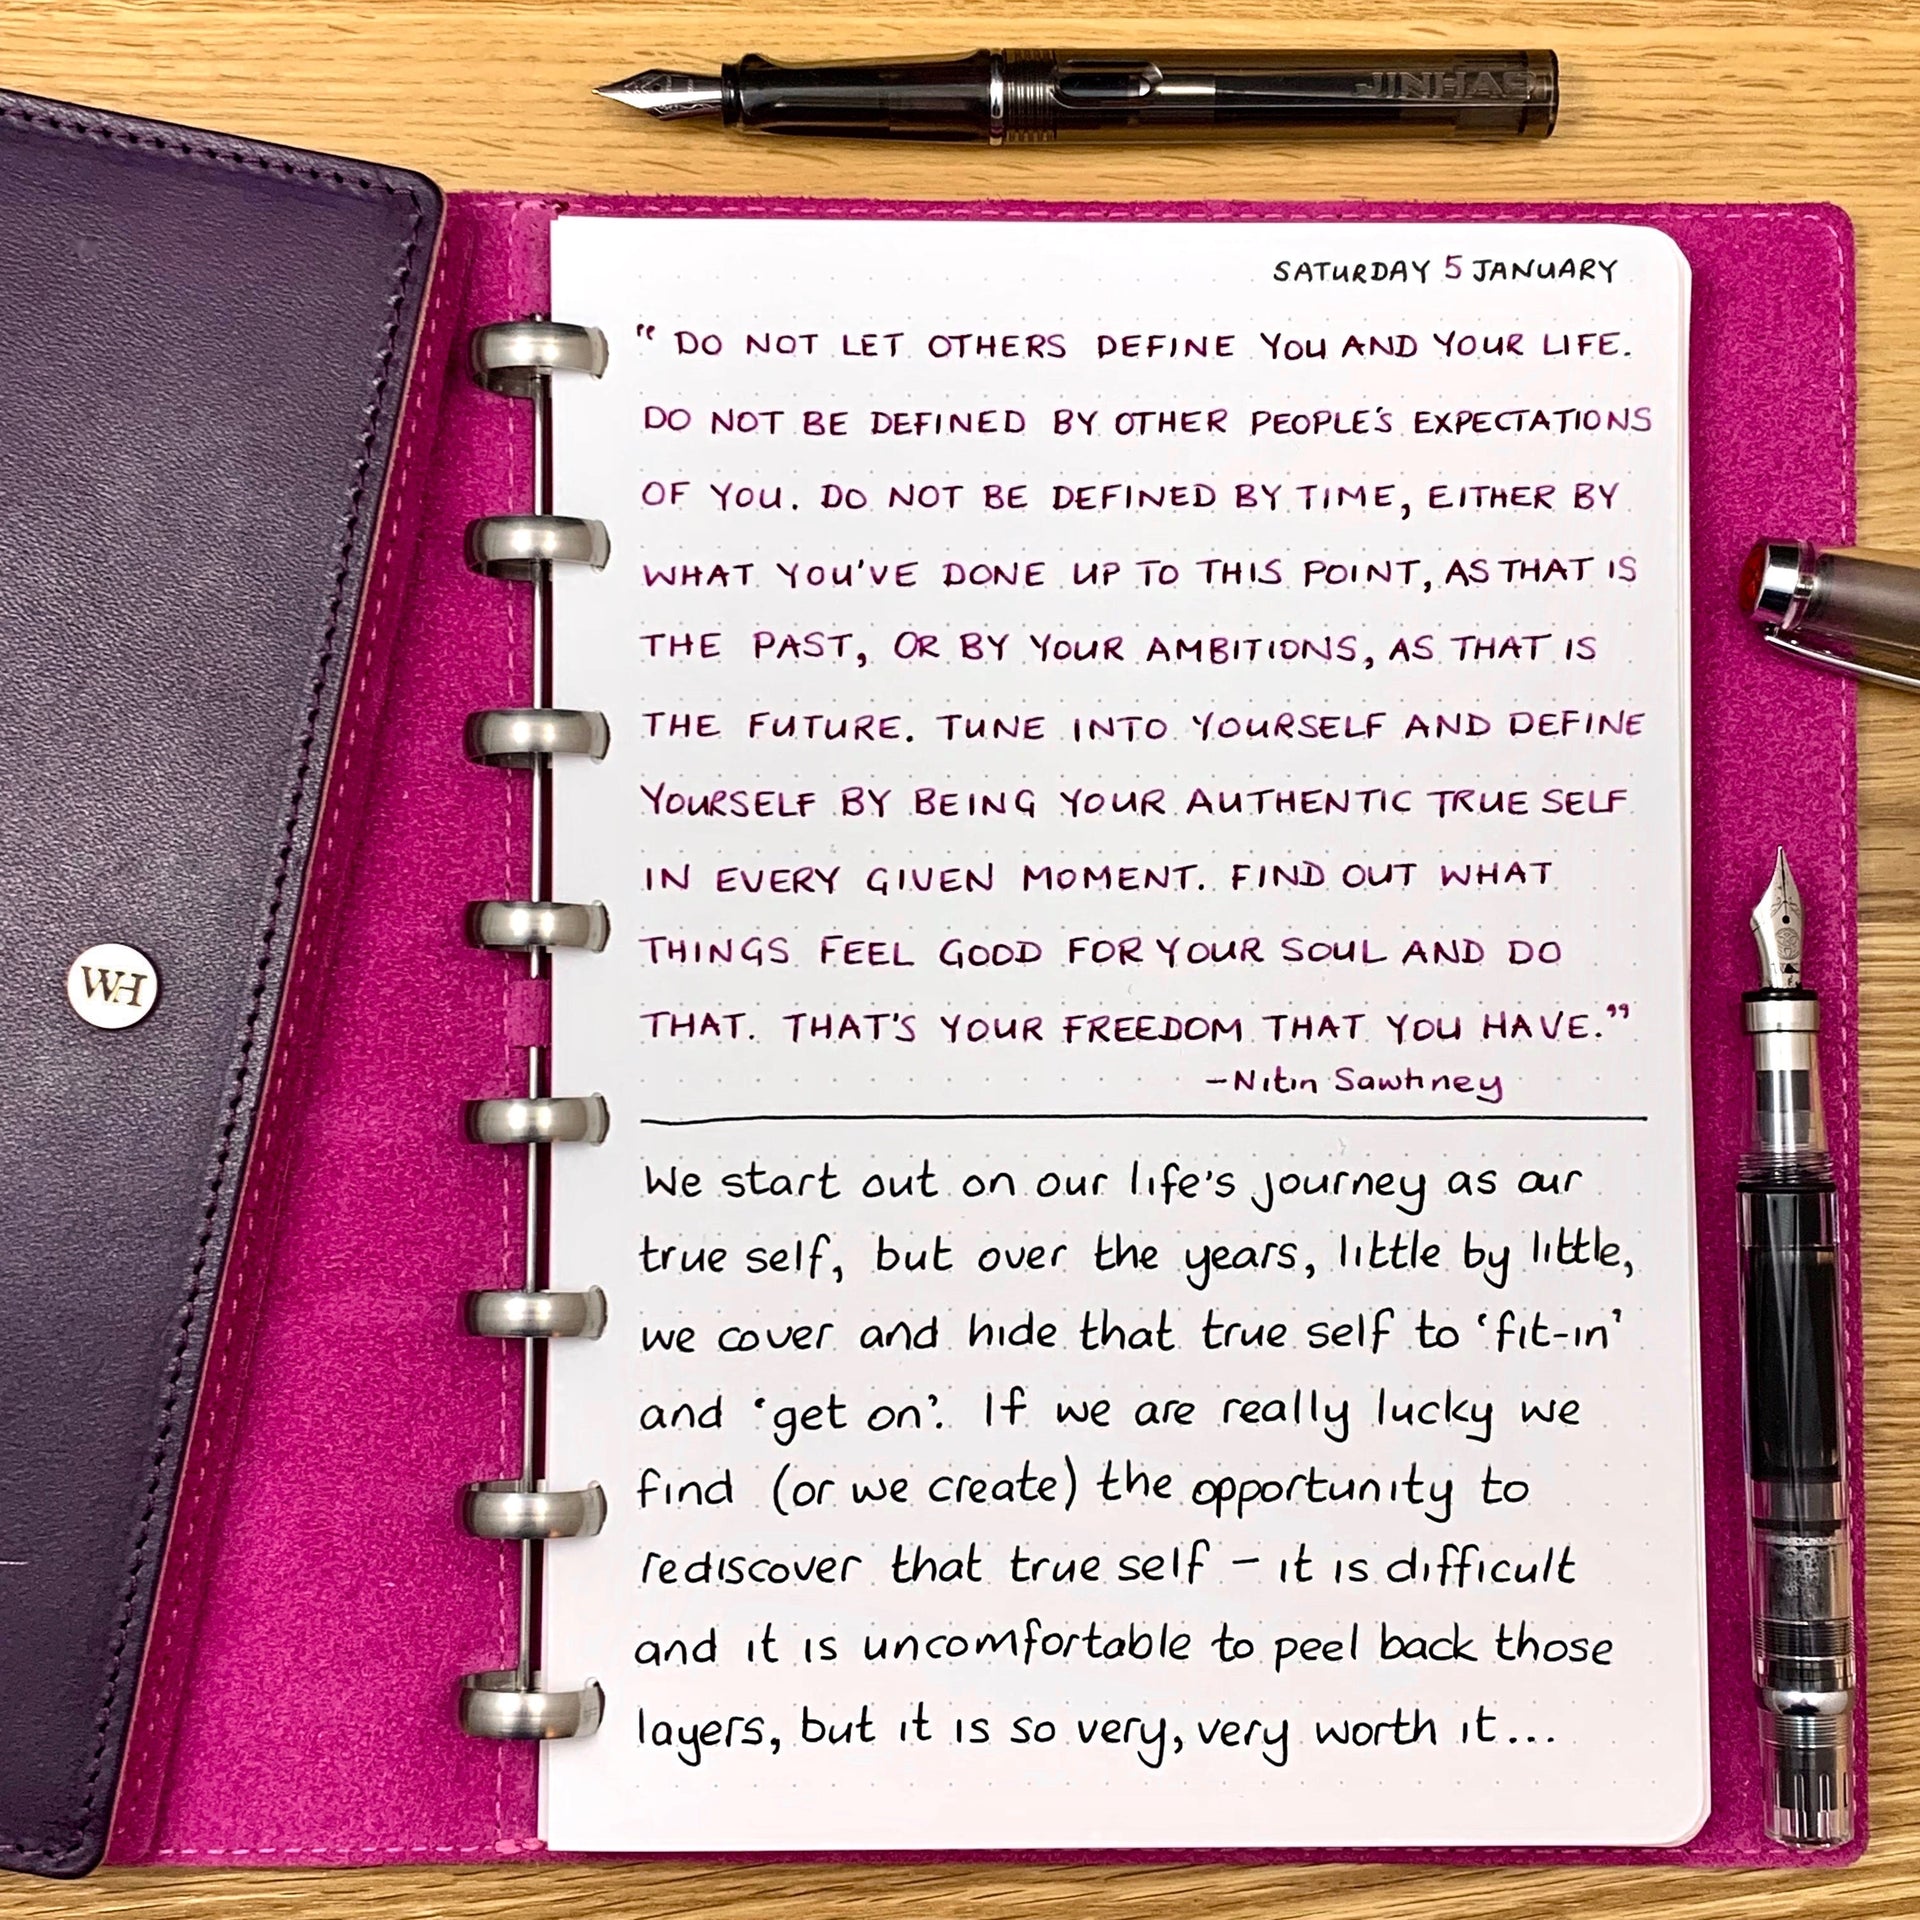 JINHAO
SATURDAY 5 JANUARY
" DO NOT LET OTHERS DEFINE YOU AND YOUR LIFE.
DO NOT BE DEFINED BY OTHER PEOPLE'S EXPECTATIONS
OF YOU. DO NOT BE DEFINED BY TIME, EITHER BY
WHAT YOU'VE DONE UP TO THIS POINT, AS THAT IS
THE PAST, OR BY YOUR AMBITIONS, AS THAT IS
THE FUTURE. TUNE INTO YOURSELF AND DEFINE
YOURSELF BY BEING YOUR AUTHENTIC TRUE SELF
IN EVERY GIVEN MOMENT. FIND OUT WHAT
THINGS FEEL GOOD FOR YOUR SOUL AND DO
THAT. THAT'S YOUR FREEDOM THAT YOU HAVE."
-Nitin Sawhney
We start out on our life's journey as our
true self, but over the years, little by little,
we cover and hide that true self to 'fit-in'
and 'get on'. If we are really lucky we
find (or we create) the opportunity to
rediscover that true self - it is difficult
and it is uncomfortable to peel back those
layers, but it is so very, very worth it...
WH